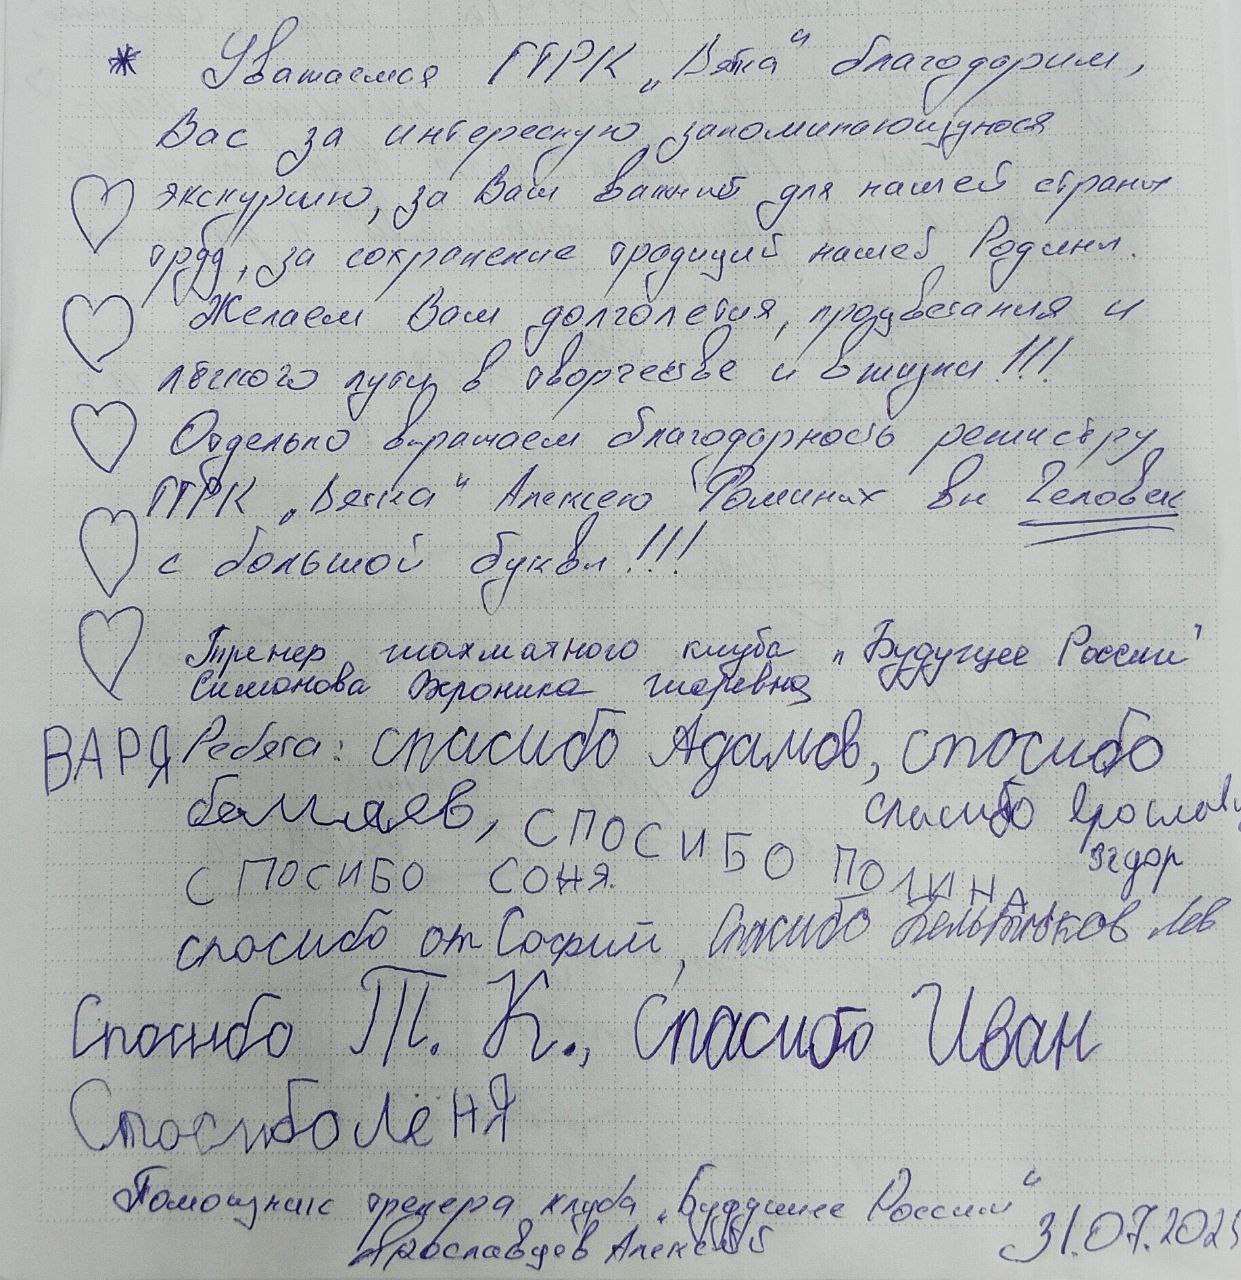 * Уважаемая ГТРК „Вятка“ благодарим,
Вас за интересную запоминающуюся
экскурсию, за Ваш важный для нашей страны
труд, за сохранение традиций нашей Родины.
Желаем Вам долголетия, процветания и
лёгкого пути в творчестве и в жизни!!!
Отдельно выражаем благодарность режистру
ГТРК „Вятка“ Алексею Фоминых вы Человек
с большой буквы!!!
Тренер шахматного клуба „Будущее России“
Симонова Вероника
ВАРЯ Ребята: спасибо Адамов, спосибо
спасибо Ярославу
СПОСИБО ПОЛИНА
СПОСИБО СОНЯ.
спосибо от Софий, Спасибо Лев
Спосибо Т. К., Спасибо Иван
Спосибо Лёня
Помощник тренера клуба „Будущее России“
Ярославцев Алексей 31.07.202